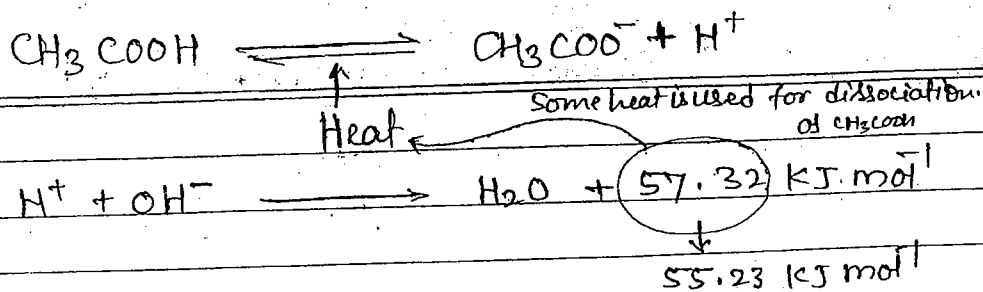 CH₃COOH ⇌ CH₃COO⁻ + H⁺
Some heat is used for dissociation.
of CH₃COOH
Heat
H⁺ + OH⁻ ⟶ H₂O + 57.32 KJ.mol⁻¹
↓
55.23 KJ mol⁻¹